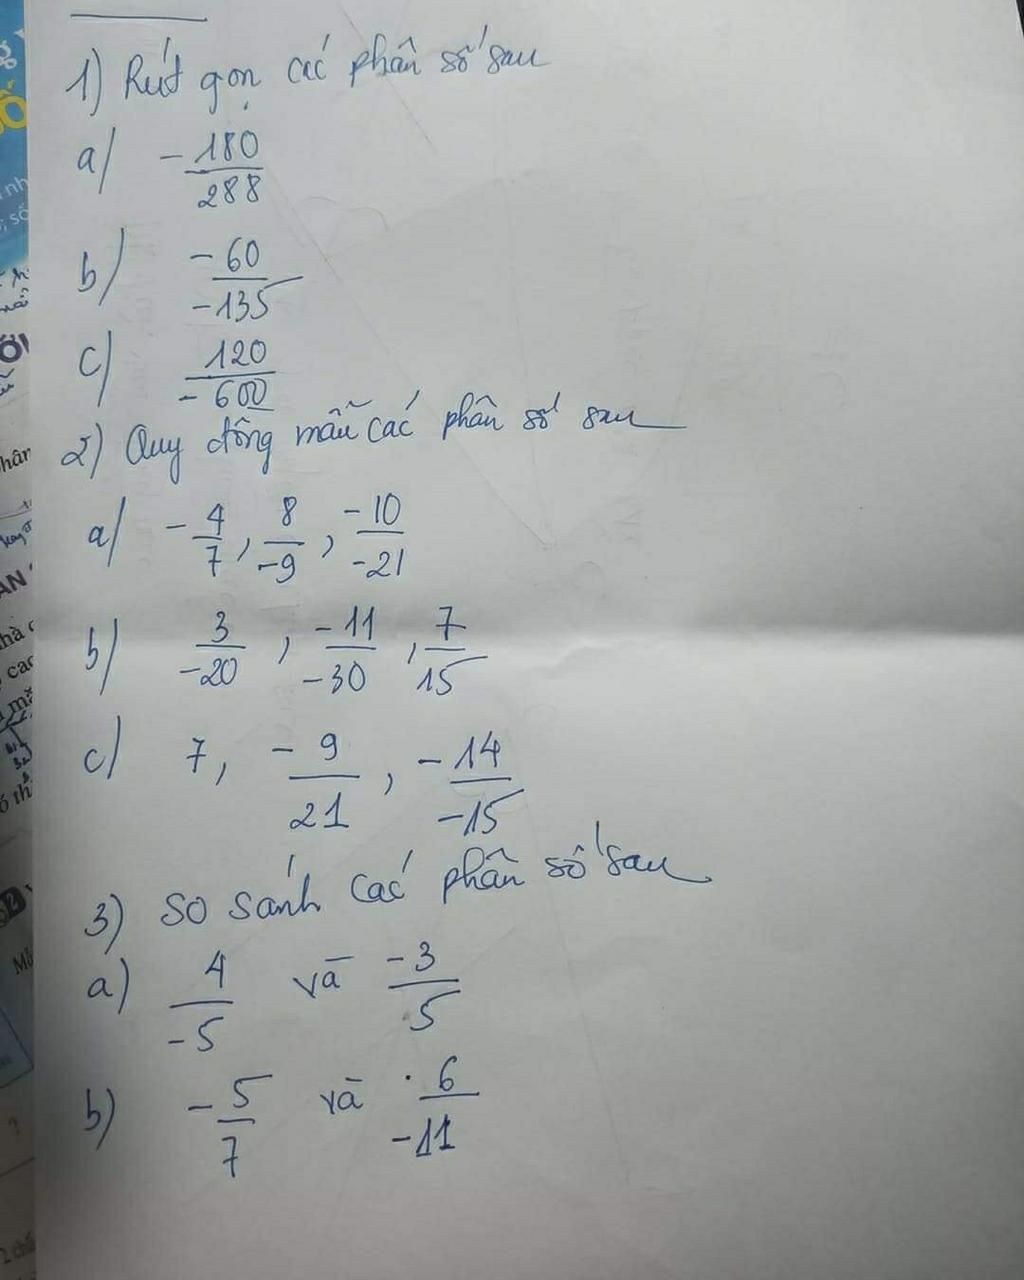 1) Rút gọn các phân số sau
a/ -180/288
b/ -60/-135
c/ 120/-600
2) Quy đồng mẫu các phân số sau
a/ -4/7, 8/-9, -10/-21
b/ 3/-20, -11/-30, 7/15
c/ 7, -9/21, -14/-15
3) So sánh các phân số sau
a) 4/-5 và -3/5
b) -5/7 và 6/-11